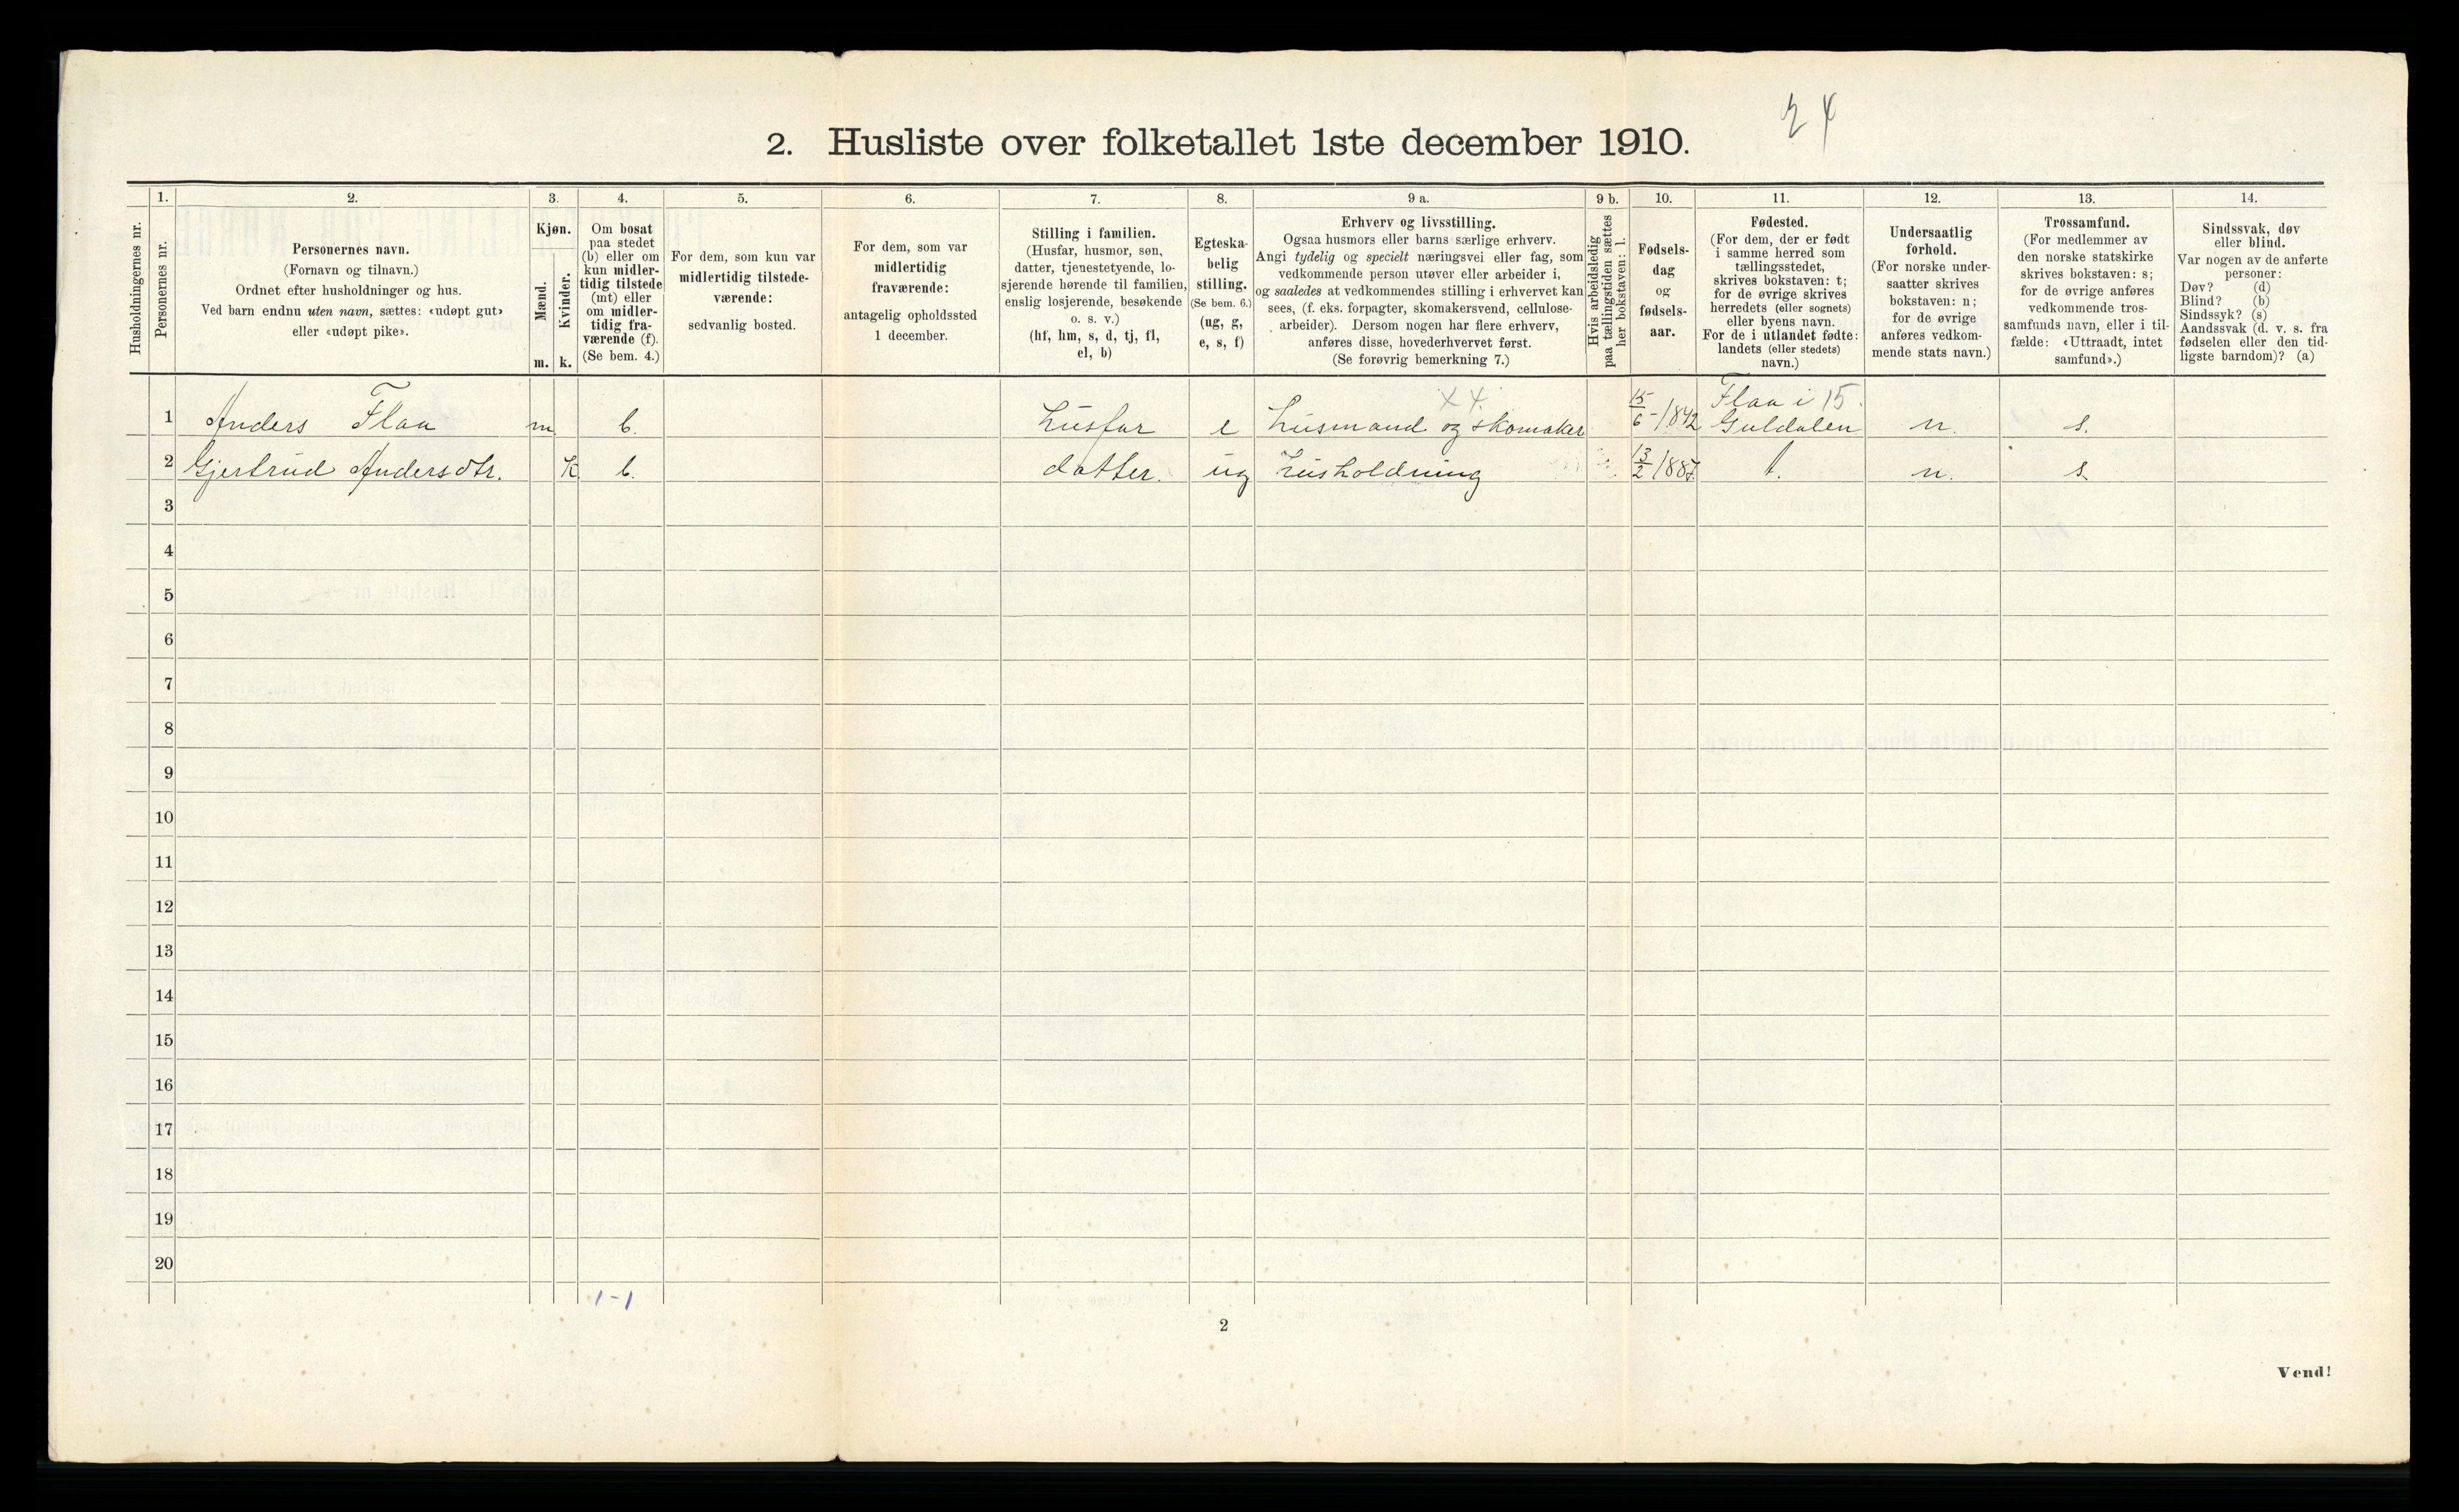 24
2. Husliste over folketallet 1ste december 1910.
Husholdningernes nr.
1.
Personernes nr.
2.
Personernes navn.
(Fornavn og tilnavn.)
Ordnet efter husholdninger og hus.
Ved barn endnu uten navn, sættes: «udøpt gut»
eller «udøpt pike».
3.
Kjøn.
Mænd.
m.
Kvinder.
k.
4.
Om bosat
paa stedet
(b) eller om
kun midler-
tidig tilstede
(mt) eller
om midler-
tidig fra-
værende (f).
(Se bem. 4.)
5.
For dem, som kun var
midlertidig tilstede-
værende:
sedvanlig bosted.
6.
For dem, som var
midlertidig
fraværende:
antagelig opholdssted
1 december.
7.
Stilling i familien.
(Husfar, husmor, søn,
datter, tjenestetyende, lo-
sjerende hørende til familien,
enslig losjerende, besøkende
o. s. v.)
(hf, hm, s, d, tj, fl,
el, b)
8.
Egteska-
belig
stilling.
(Se bem. 6.)
(ug, g,
e, s, f)
9 a.
Erhverv og livsstilling.
Ogsaa husmors eller barns særlige erhverv.
Angi tydelig og specielt næringsvei eller fag, som
vedkommende person utøver eller arbeider i,
og saaledes at vedkommendes stilling i erhvervet kan
sees, (f. eks. forpagter, skomakersvend, cellulose-
arbeider). Dersom nogen har flere erhverv,
anføres disse, hovederhvervet først.
(Se forøvrig bemerkning 7.)
9 b.
Hvis arbeidsledig
paa tællingstiden sættes
her bokstaven: l.
10.
Fødsels-
dag
og
fødsels-
aar.
11.
Fødested.
(For dem, der er født
i samme herred som
tællingsstedet,
skrives bokstaven: t;
for de øvrige skrives
herredets (eller sognets)
eller byens navn.
For de i utlandet fødte:
landets (eller stedets)
navn.)
12.
Undersaatlig
forhold.
(For norske under-
saatter skrives
bokstaven: n;
for de øvrige
anføres vedkom-
mende stats navn.)
13.
Trossamfund.
(For medlemmer av
den norske statskirke
skrives bokstaven: s;
for de øvrige anføres
vedkommende tros-
samfunds navn, eller i til-
fælde: «Uttraadt, intet
samfund».)
14.
Sindssvak, døv
eller blind.
Var nogen av de anførte
personer:
Døv? (d)
Blind? (b)
Sindssyk? (s)
Aandssvak (d. v. s. fra
fødselen eller den tid-
ligste barndom)? (a)
x 4. Flaa i 15.
1 Anders Flaa m. b. Husfar e Husmand og skomaker 15/6-1842 Guldalen n. s.
2 Gjertrud Andersdtr. K. b. datter. ug Husholdning 13/2 1887. t. n. s.
3
4
5
6
7
8
9
10
11
12
13
14
15
16
17
18
19
20
1-1
2
Vend!